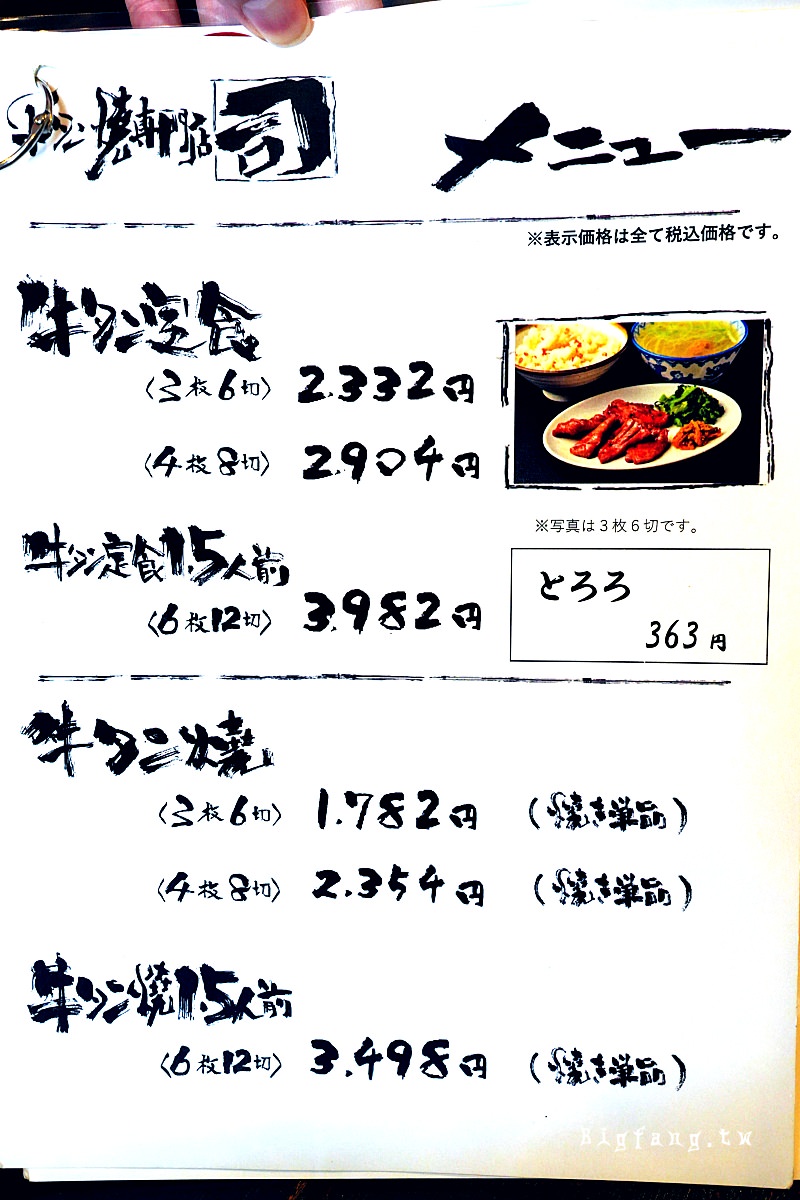 牛タン焼専門店 司
メニュー
※表示価格は全て税込価格です。
牛タン定食
〈3枚6切〉 2.332円
〈4枚8切〉 2.904円
※写真は3枚6切です。
牛タン定食1.5人前
〈6枚12切〉 3.982円
とろろ
363円
牛タン焼
〈3枚6切〉 1.782円 (焼き単品)
〈4枚8切〉 2.354円 (焼き単品)
牛タン焼1.5人前
〈6枚12切〉 3.498円 (焼き単品)
Bigfang.tw